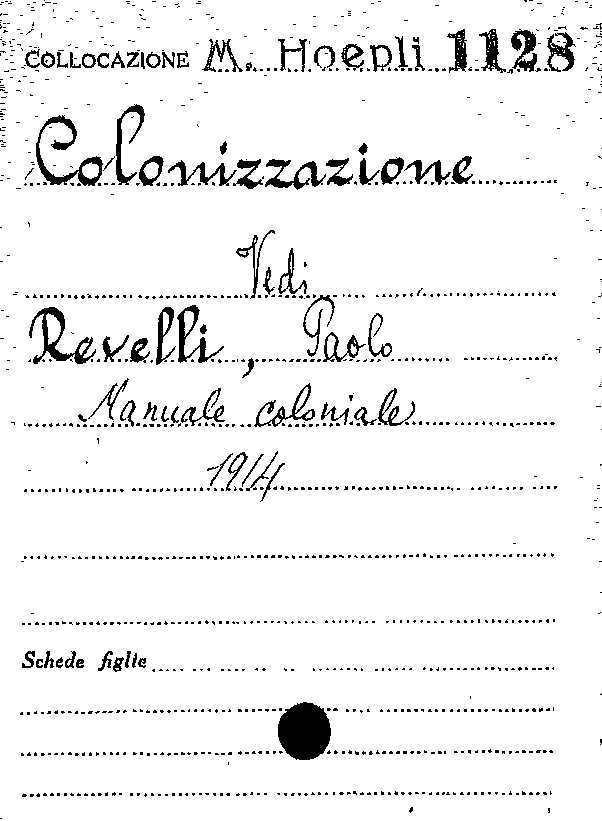 COLLOCAZIONE M. Hoepli 1128
Colonizzazione
Vedi
Revelli, Paolo
Manuale coloniale
1914
Schede figlie